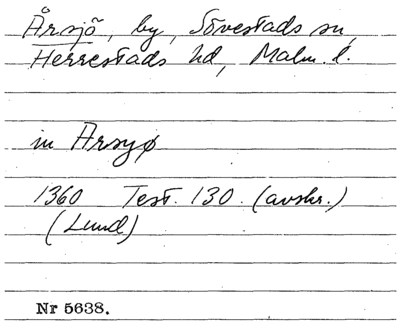 Årsjö, by, Sövestads sn,
Herrestads hd, Malm. l.
in Arsyø
1360 Test. 130. (avskr.)
(Lund)
Nr 5638.